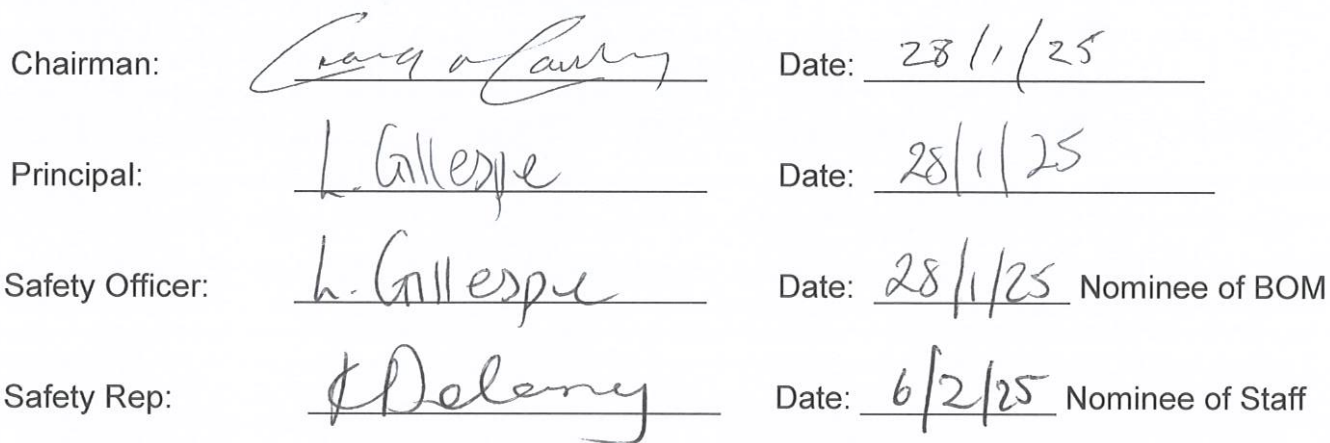 Chairman: Date: 28/1/25
Principal: L. Gillespie Date: 28/1/25
Safety Officer: L. Gillespie Date: 28/1/25 Nominee of BOM
Safety Rep: K Delaney Date: 6/2/25 Nominee of Staff